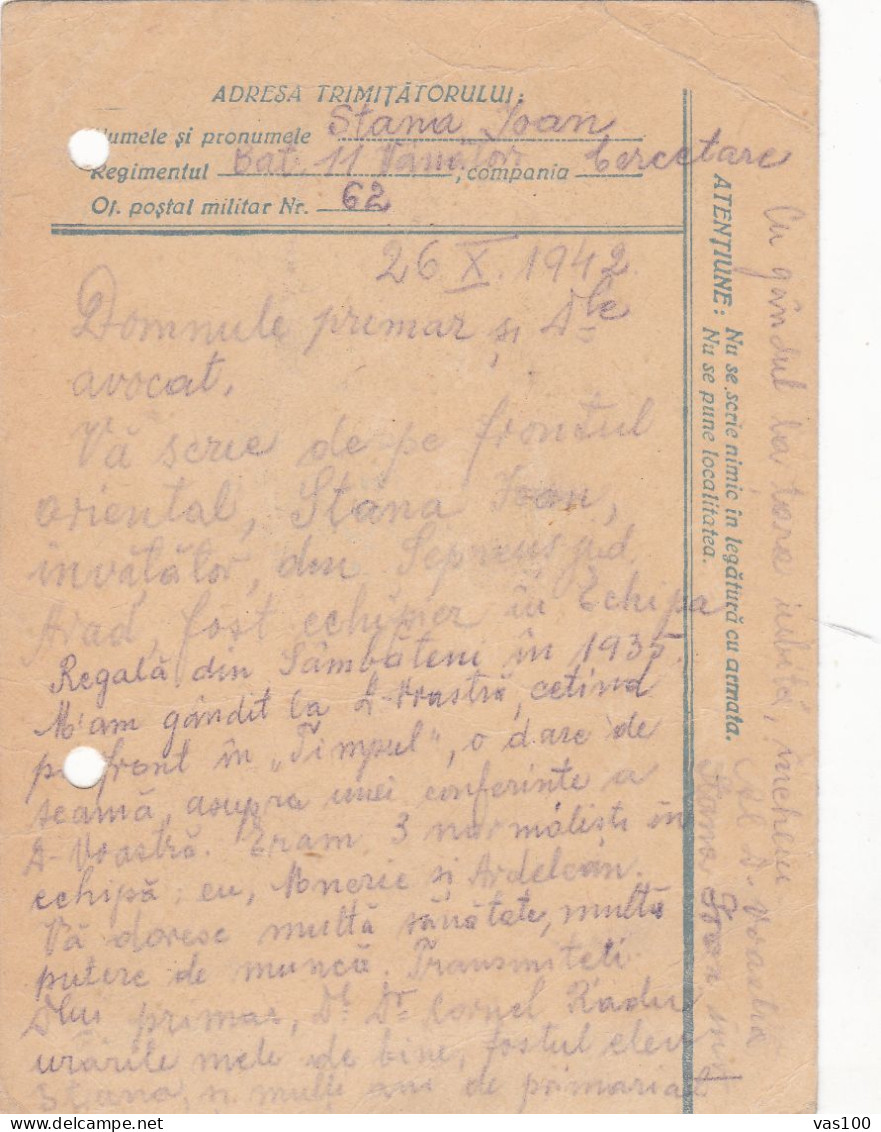 ADRESA TRIMIȚĂTORULUI:
Numele și pronumele Stana Ioan
Regimentul Bat. 11 Vânători, compania Cercetare
Of. poștal militar Nr. 62
26 X. 1942.
Domnule primar și Dle
avocat,
Vă scrie de pe frontul
oriental, Stana Ioan,
învățător, din Șepreuș jud.
Arad, fost echipier în Echipa
Regală din Sâmbăteni în 1935.
M'am gândit la D-Voastră, cetind
pe front în „Timpul", o dare de
seamă, asupra unei conferințe a
D-Voastră. Eram 3 normaliști în
echipă: eu, și Ardelean.
Vă doresc multă sănătate, multă
putere de muncă. Transmiteți
Dlui primar, Dl Dr Cornel Radu
urările mele de bine, fostul elev
Stana, mulți ani de primariat
ATENȚIUNE: Nu se scrie nimic în legătură cu armata.
Nu se pune localitatea.
Cu gândul la țara iubită, închei
Al D-Voastră
Stana Ioan înv
vas100